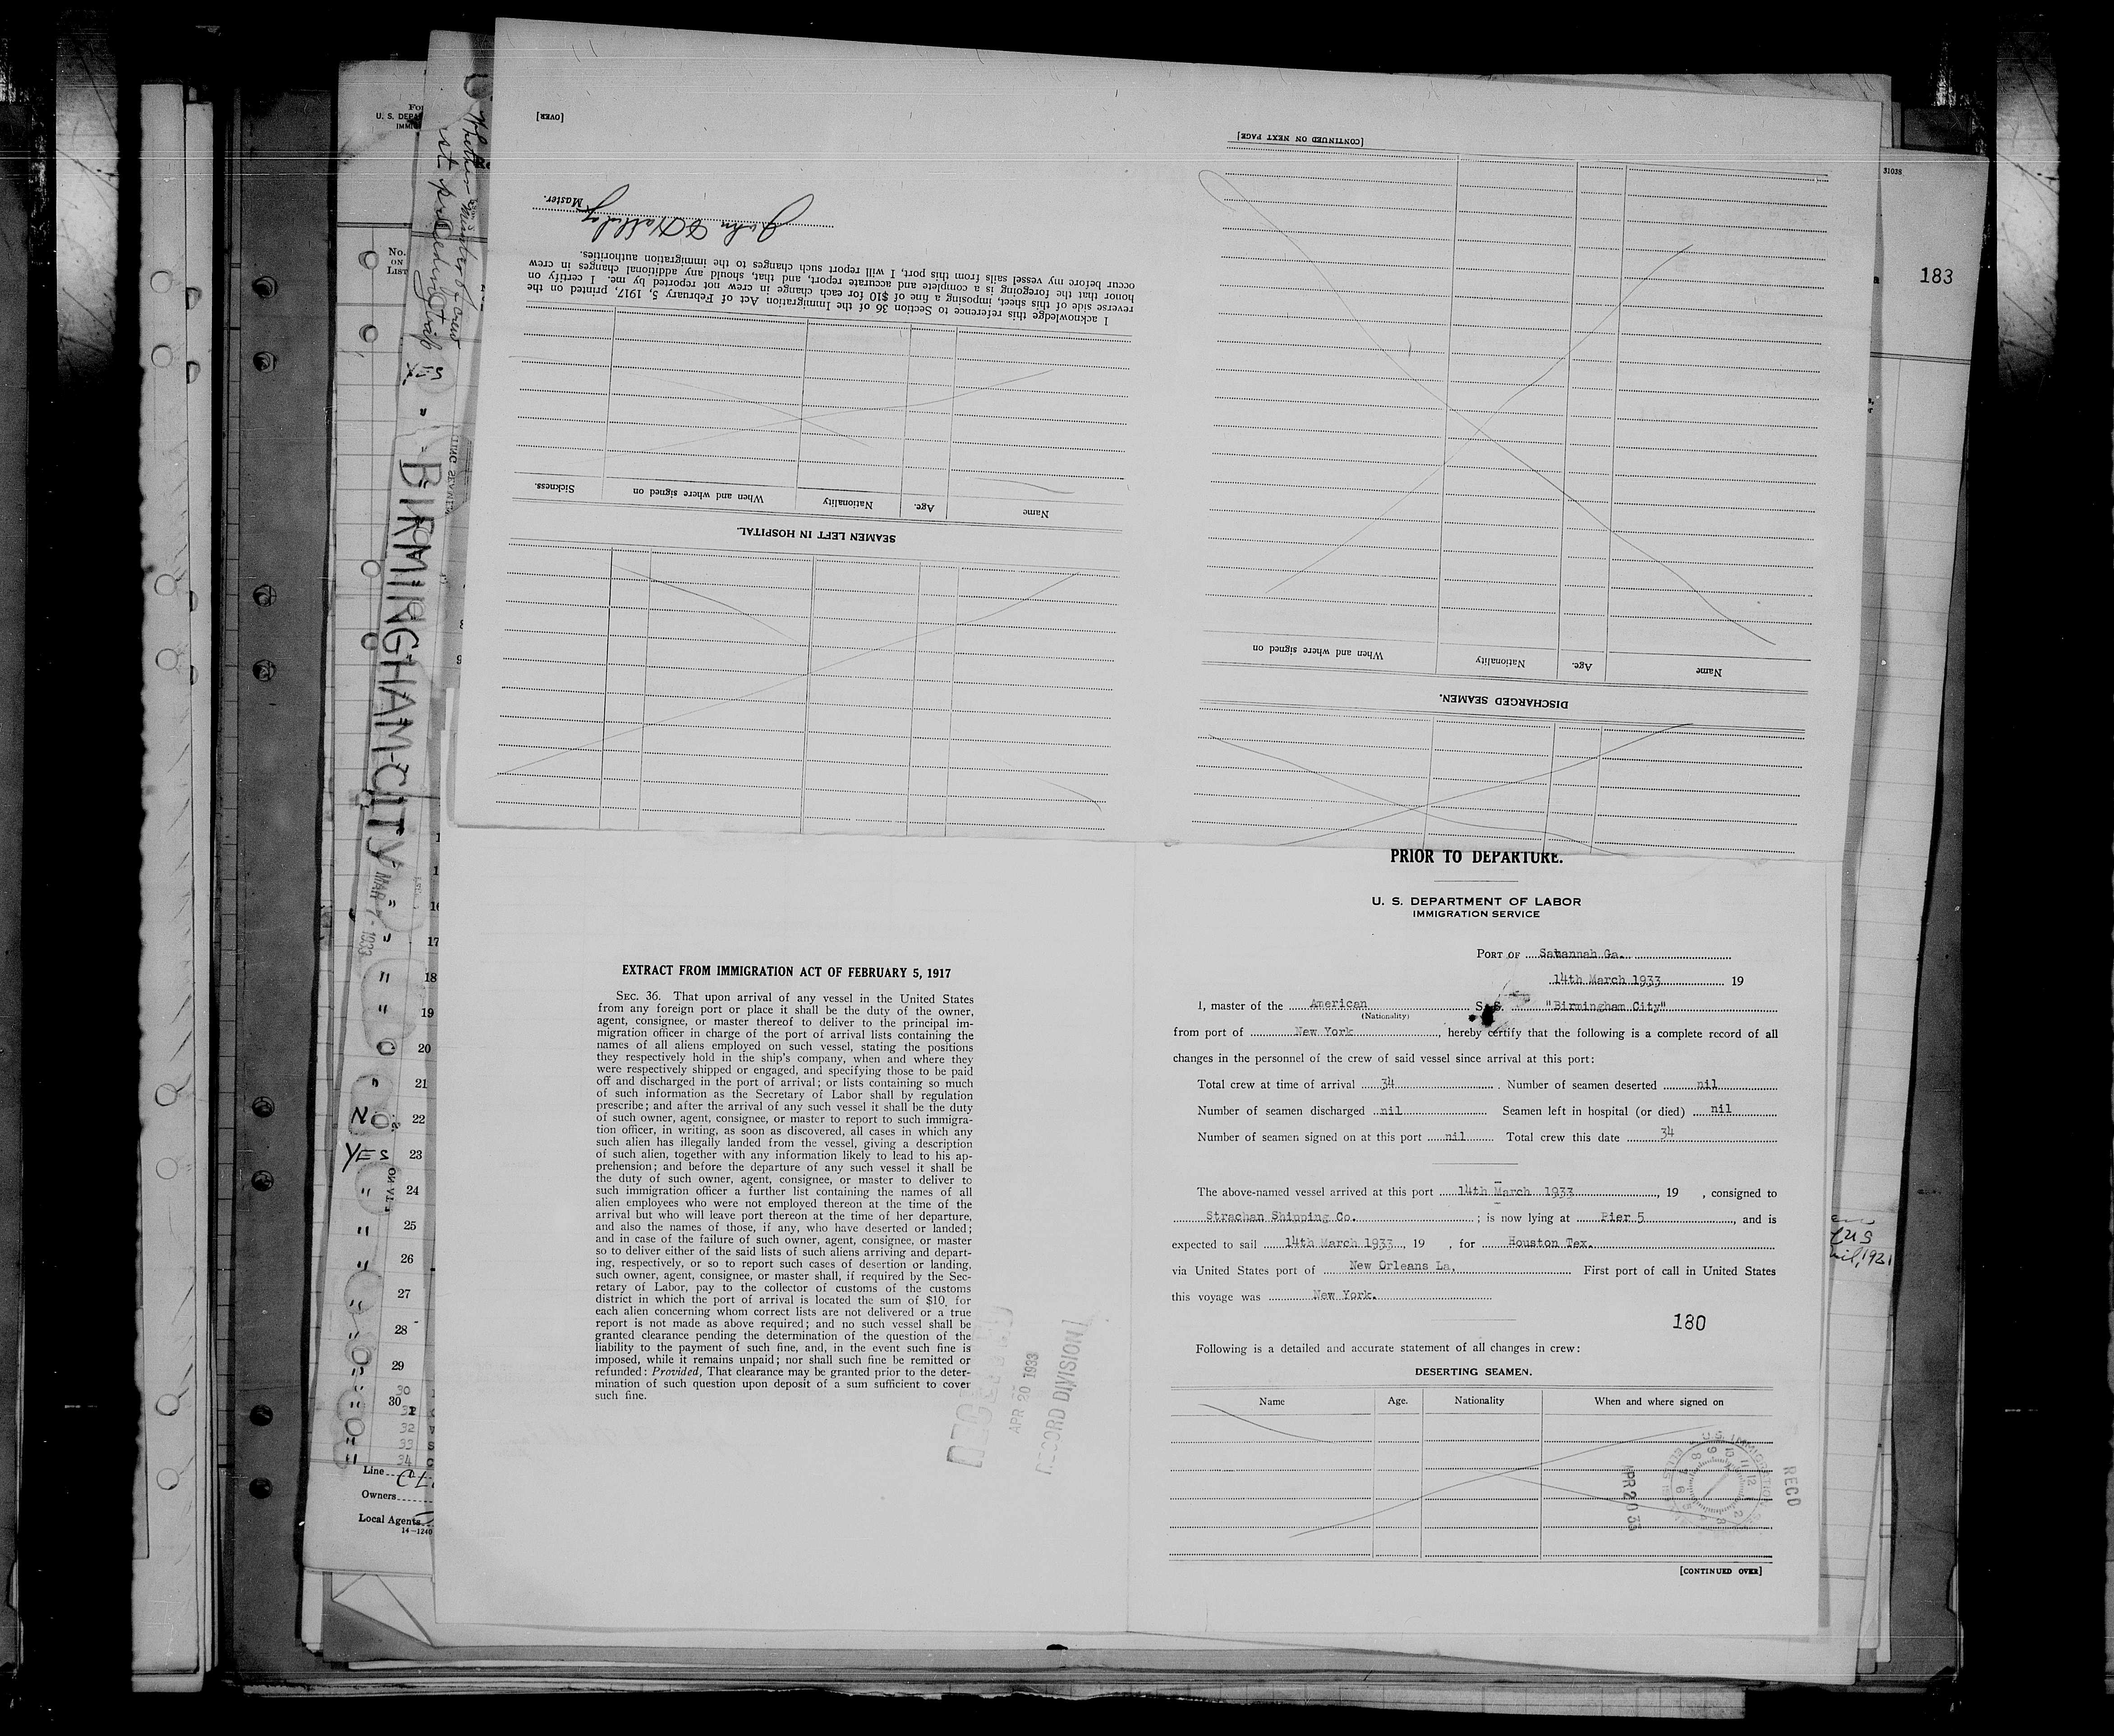 [OVER]
Master.
John
I acknowledge this reference to Section 36 of the Immigration Act of February 5, 1917, printed on the
reverse side of this sheet, imposing a fine of $10 for each change in crew not reported by me. I certify on
honor that the foregoing is a complete and accurate report, and that, should any additional changes in crew
occur before my vessel sails from this port, I will report such changes to the immigration authorities.
SEAMEN LEFT IN HOSPITAL.
Name Age. Nationality When and where signed on Sickness.
[CONTINUED ON NEXT PAGE]
DISCHARGED SEAMEN.
Name Age. Nationality When and where signed on
31038
183
U. S. DEPA
IMMI
No.
ON
LIST
YES
BIRMINGHAM-CITY
MAR 7- 1933
16
17
18
19
20
21
NO 22
YES 23
24
25
26
27
28
29
30
30
32
33
34
Line
Owners
Local Agents
14-1240
EXTRACT FROM IMMIGRATION ACT OF FEBRUARY 5, 1917
SEC. 36. That upon arrival of any vessel in the United States
from any foreign port or place it shall be the duty of the owner,
agent, consignee, or master thereof to deliver to the principal im-
migration officer in charge of the port of arrival lists containing the
names of all aliens employed on such vessel, stating the positions
they respectively hold in the ship's company, when and where they
were respectively shipped or engaged, and specifying those to be paid
off and discharged in the port of arrival; or lists containing so much
of such information as the Secretary of Labor shall by regulation
prescribe; and after the arrival of any such vessel it shall be the duty
of such owner, agent, consignee, or master to report to such immigra-
tion officer, in writing, as soon as discovered, all cases in which any
such alien has illegally landed from the vessel, giving a description
of such alien, together with any information likely to lead to his ap-
prehension; and before the departure of any such vessel it shall be
the duty of such owner, agent, consignee, or master to deliver to
such immigration officer a further list containing the names of all
alien employees who were not employed thereon at the time of the
arrival but who will leave port thereon at the time of her departure,
and also the names of those, if any, who have deserted or landed;
and in case of the failure of such owner, agent, consignee, or master
so to deliver either of the said lists of such aliens arriving and depart-
ing, respectively, or so to report such cases of desertion or landing,
such owner, agent, consignee, or master shall, if required by the Sec-
retary of Labor, pay to the collector of customs of the customs
district in which the port of arrival is located the sum of $10 for
each alien concerning whom correct lists are not delivered or a true
report is not made as above required; and no such vessel shall be
granted clearance pending the determination of the question of the
liability to the payment of such fine, and, in the event such fine is
imposed, while it remains unpaid; nor shall such fine be remitted or
refunded: Provided, That clearance may be granted prior to the deter-
mination of such question upon deposit of a sum sufficient to cover
such fine.
APR 20 1933
RECORD DIVISION
PRIOR TO DEPARTURE.
U. S. DEPARTMENT OF LABOR
IMMIGRATION SERVICE
PORT OF Savannah Ga.
14th March 1933 19
I, master of the American S.S. "Birmingham City"
(Nationality)
from port of New York, hereby certify that the following is a complete record of all
changes in the personnel of the crew of said vessel since arrival at this port:
Total crew at time of arrival 34. Number of seamen deserted nil
Number of seamen discharged nil Seamen left in hospital (or died) nil
Number of seamen signed on at this port nil Total crew this date 34
The above-named vessel arrived at this port 14th March 1933, 19 , consigned to
Strachan Shipping Co. ; is now lying at Pier 5, and is
expected to sail 14th March 1933, 19 , for Houston Tex.
via United States port of New Orleans La. First port of call in United States
this voyage was New York.
180
Following is a detailed and accurate statement of all changes in crew:
DESERTING SEAMEN.
Name Age. Nationality When and where signed on
APR 20 33
RECD
[CONTINUED OVER]